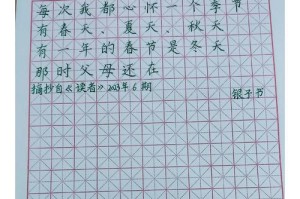 每次我都心怀一个季节
有春天、夏天、秋天
有一年的春节是冬天
那时父母还在
摘抄自《读者》2023年6期
银子书